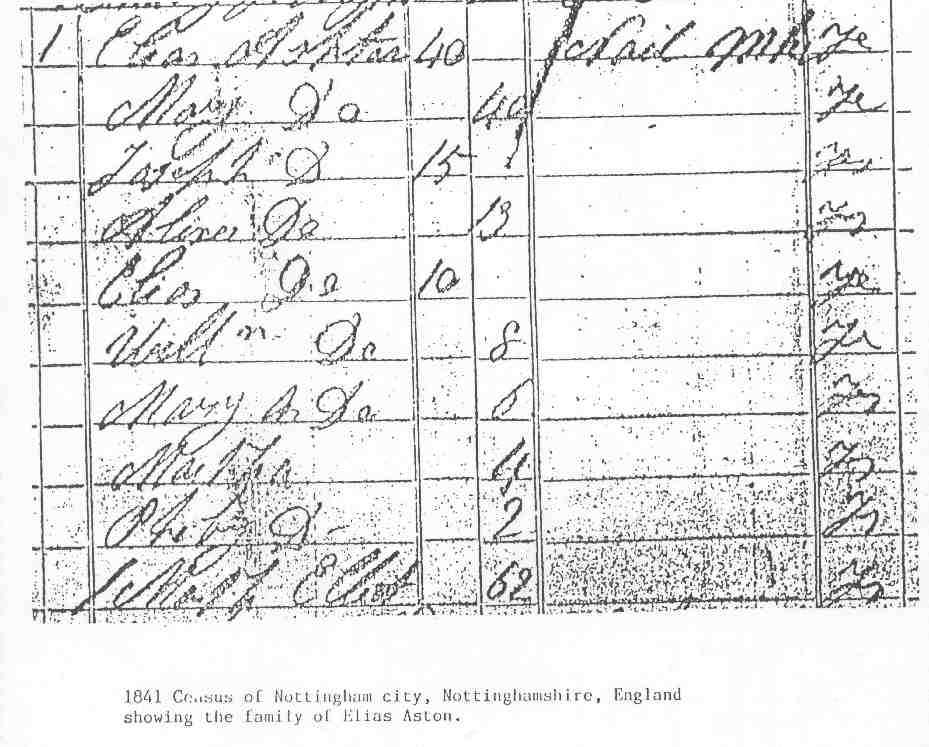 1 Elias Ashton 40 Nail Mkr Ye
Mary Do 40 Ye
Joseph Do 15 Yes
Do 13 Yes
Elias Do 10 Ye
Will m Do 8 Ye
Mary A Do 6 Yes
Martha 4 Yes
Do 2 Yes
Elliot 62 Yes
1841 Census of Nottingham city, Nottinghamshire, England
showing the family of Elias Aston.